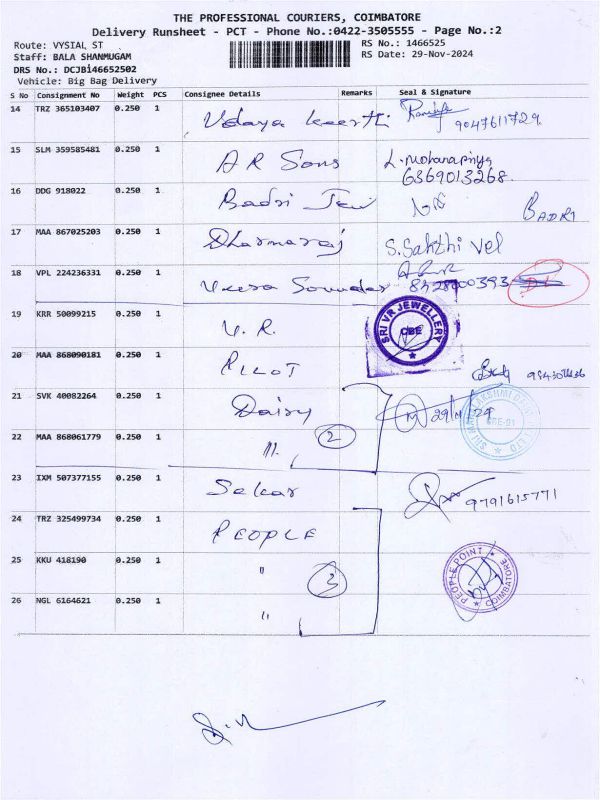 THE PROFESSIONAL COURIERS, COIMBATORE
Delivery Runsheet - PCT - Phone No.:0422-3505555 - Page No.:2
Route: VYSIAL ST RS No.: 1466525
Staff: BALA SHANMUGAM RS Date: 29-Nov-2024
DRS No.: DCJBi46652502
Vehicle: Big Bag Delivery
S No Consignment No Weight PCS Consignee Details Remarks Seal & Signature
14 TRZ 365103407 0.250 1 Udaya keerthi 9047611729
15 SLM 359585481 0.250 1 A R Sons L. Mohanapriya
6369013268.
16 DDG 918022 0.250 1 Badri Jew BADRI
17 MAA 867025203 0.250 1 Dharmaraj S. Sakthi Vel
18 VPL 224236331 0.250 1 Veera Soundar
19 KRR 50099215 0.250 1 V. R. SRI VR JEWELLERY CBE
20 MAA 868090181 0.250 1 PILOT
21 SVK 40082264 0.250 1 Daisy 29/11/24
22 MAA 868061779 0.250 1 11. 2
23 IXM 507377155 0.250 1 Sekar 9791615771
24 TRZ 325499734 0.250 1 PEOPLE
25 KKU 418190 0.250 1 " 3 PEOPLE POINT COIMBATORE
26 NGL 6164621 0.250 1 "